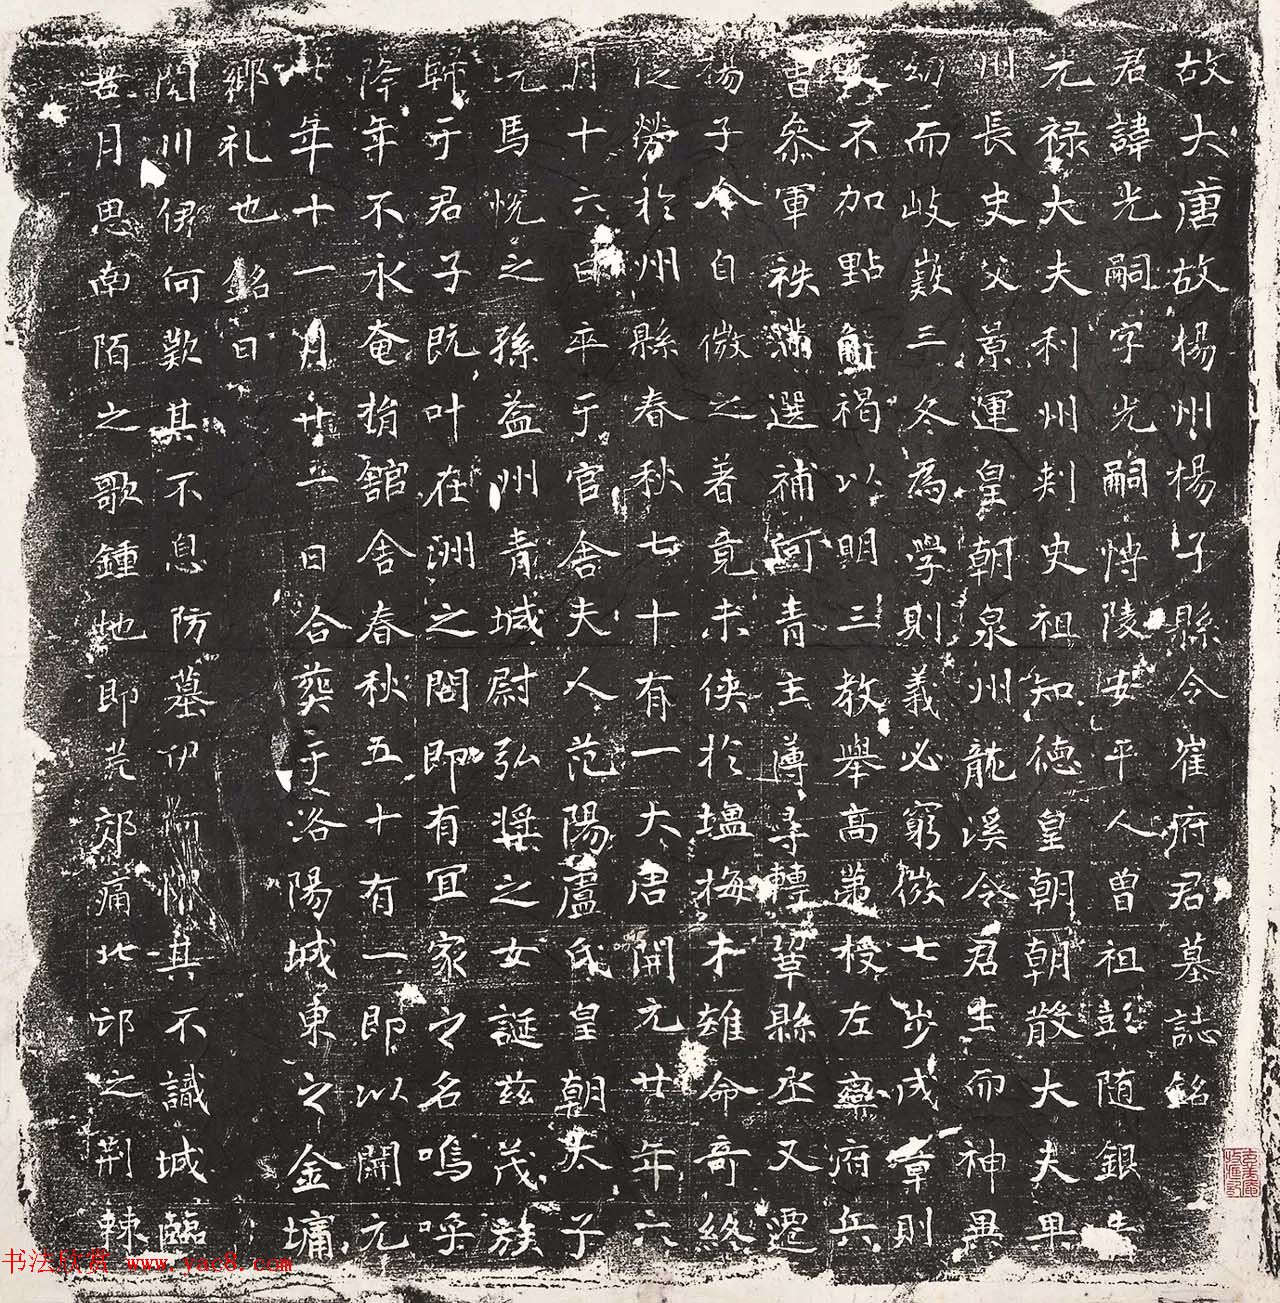 故大唐故楊州楊子縣令崔府君墓誌銘
君諱光嗣字光嗣博陵安平人曾祖彭随銀青
光禄大夫利州刾史祖知德皇朝朝散大夫卑
川長史父景運皇朝泉州龍溪令君生而神異
幼而岐嶷三冬為學則義必窮微七步成章則
文不加點解褐以明三教舉高第授左衛府兵
曹叅軍秩滿選補河青主簿尋轉鞏縣丞又遷
楊子令自微之著竟未侠扵塩梅才雄命奇終
従勞扵州縣春秋七十有一大唐開元廿年六
月十六日卒于官舎夫人范陽盧氏皇朝太子
洗馬悅之孫益州青城尉弘奬之女誕兹茂族
歸于君子既叶在洲之閤即有冝家之名嗚呼
降年不永奄捐舘舎春秋五十有一即以開元
廿年十一月廿二日合葬于洛陽城東之金墉
鄉礼也銘曰
閱川伊何歎其不息防墓伊何其不識城臨
昔月思南陌之歌鍾地即荒郊痛北邙之荆棘
书法欣赏 www.yac8.com